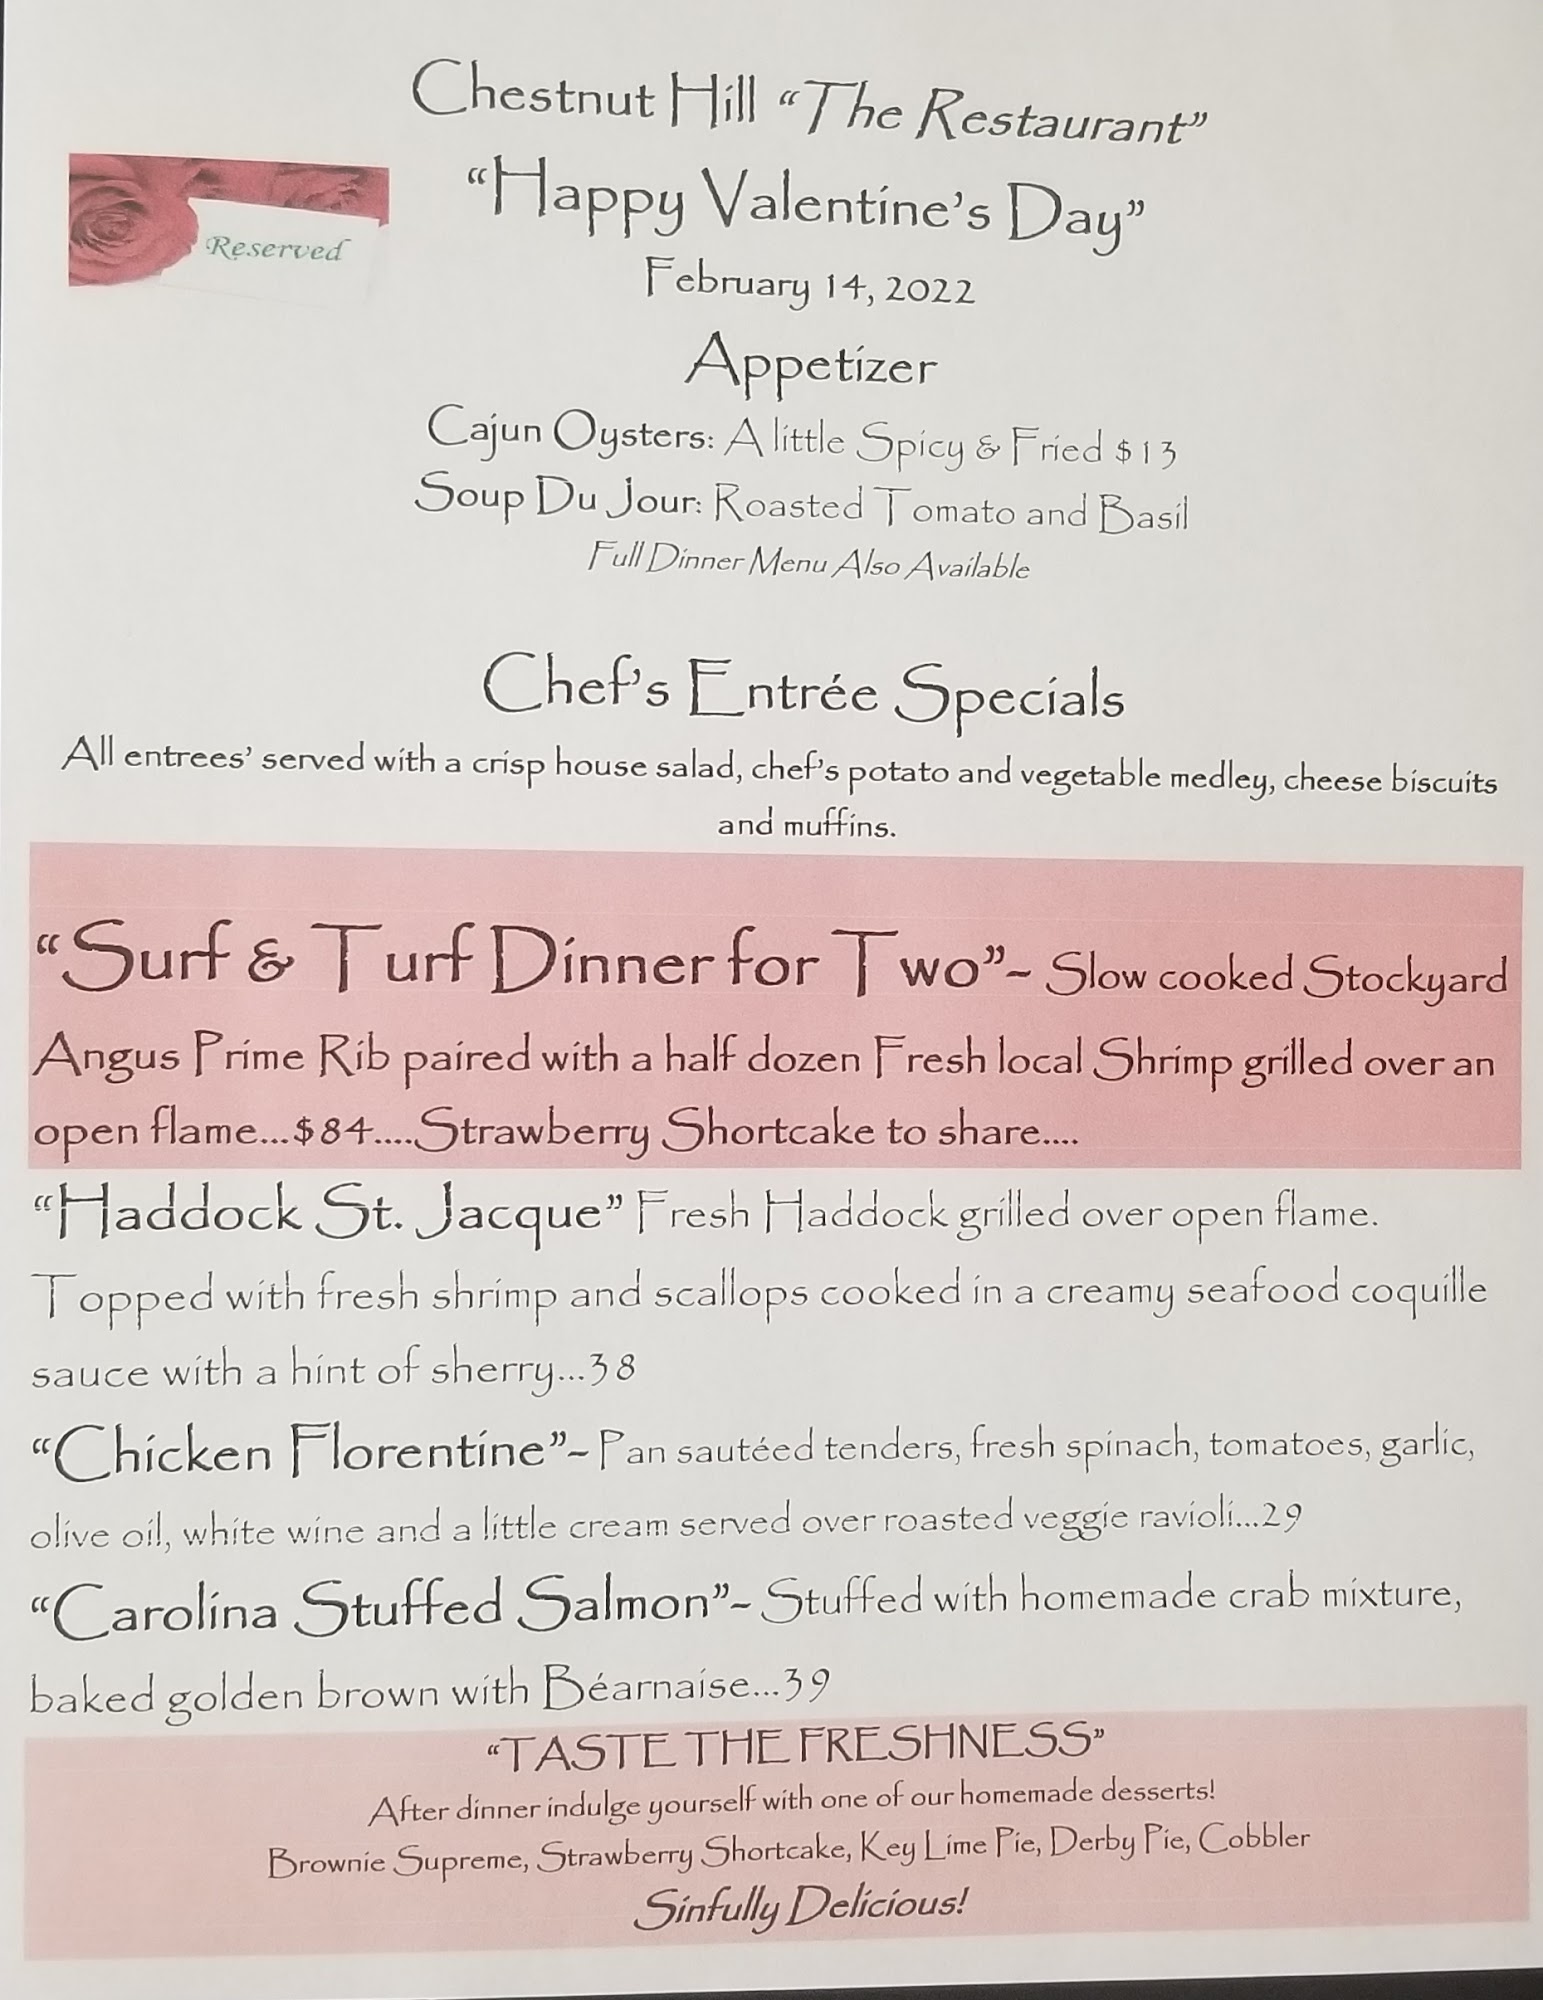 Chestnut Hill “The Restaurant”
“Happy Valentine’s Day”
Reserved
February 14, 2022
Appetizer
Cajun Oysters: A little Spicy & Fried $13
Soup Du Jour: Roasted Tomato and Basil
Full Dinner Menu Also Available
Chef’s Entrée Specials
All entrees’ served with a crisp house salad, chef’s potato and vegetable medley, cheese biscuits
and muffins.
“Surf & Turf Dinner for Two”~ Slow cooked Stockyard
Angus Prime Rib paired with a half dozen Fresh local Shrimp grilled over an
open flame...$84....Strawberry Shortcake to share....
“Haddock St. Jacque” Fresh Haddock grilled over open flame.
Topped with fresh shrimp and scallops cooked in a creamy seafood coquille
sauce with a hint of sherry...38
“Chicken Florentine”~ Pan sautéed tenders, fresh spinach, tomatoes, garlic,
olive oil, white wine and a little cream served over roasted veggie ravioli...29
“Carolina Stuffed Salmon”~ Stuffed with homemade crab mixture,
baked golden brown with Béarnaise...39
“TASTE THE FRESHNESS”
After dinner indulge yourself with one of our homemade desserts!
Brownie Supreme, Strawberry Shortcake, Key Lime Pie, Derby Pie, Cobbler
Sinfully Delicious!